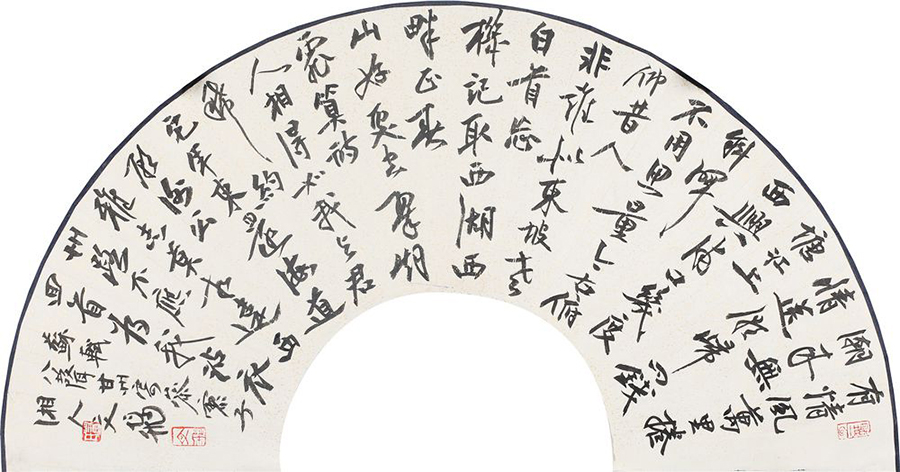 有情風萬里捲
潮来無
情送潮歸問錢
塘江上
西興浦口幾度
斜暉
不用思量今古俯
仰昔人
非誰似東坡老
白首忘
機記取西湖西
畔正春
山好處空翠烟
霏算詩
人相得如我與君
稀約
它年東還海道
願謝公
雅志莫相違西
州路不應
回首為我沾衣
蘇軾八聲甘州寄參寥子
湘人文